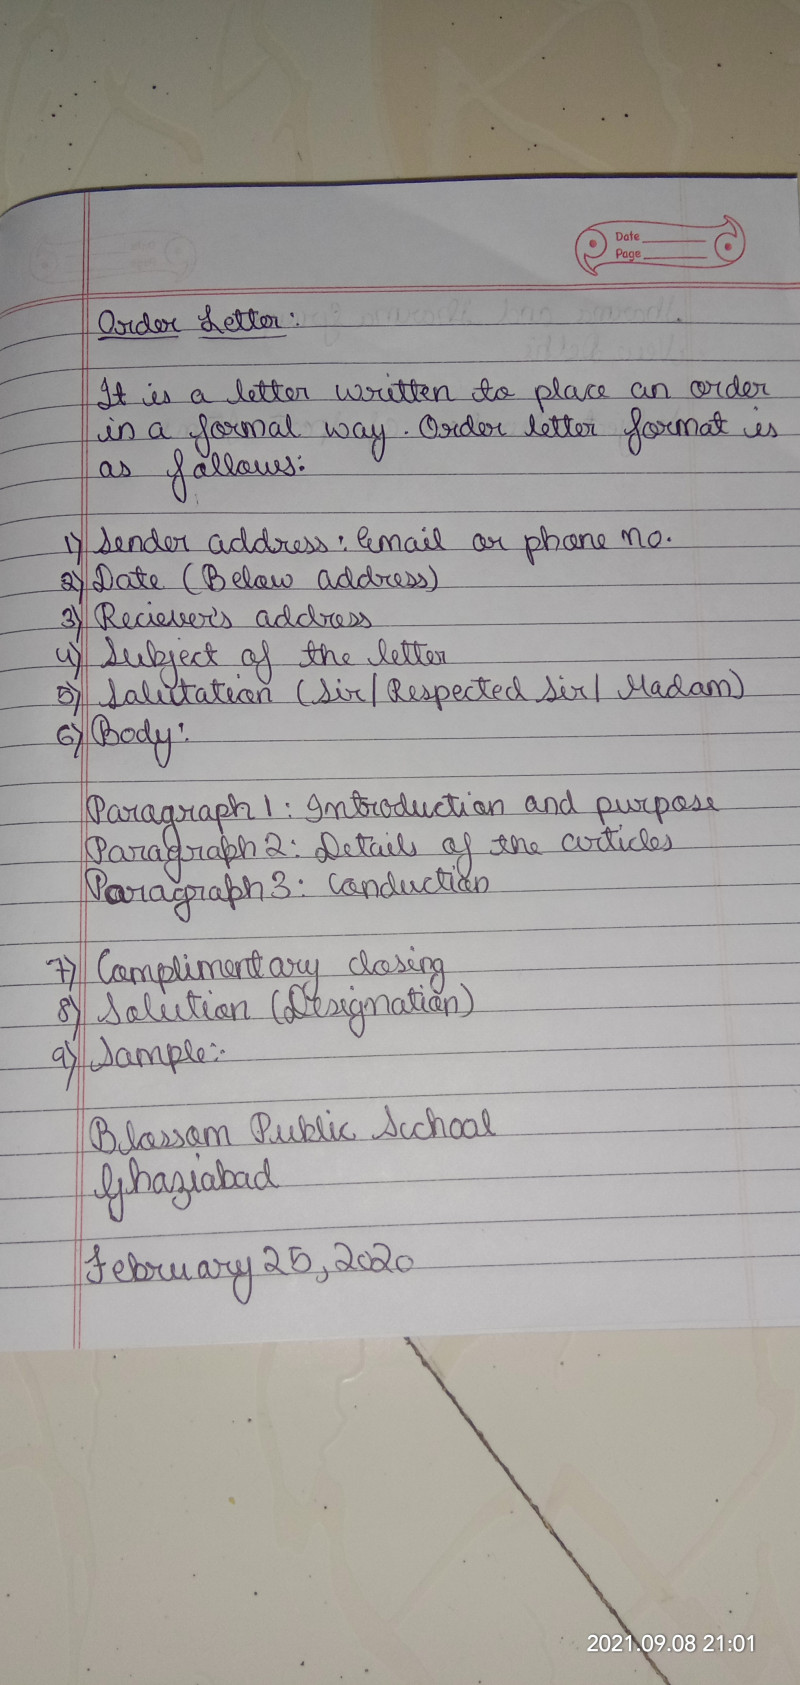 Date
Page
Order Letter:
It is a letter written to place an order
in a formal way. Order letter format is
as follows:
1) Sender address: Email or phone no.
2) Date (Below address)
3) Reciever's address
4) Subject of the letter
5) Salutation (Sir/Respected Sir/Madam)
6) Body:
Paragraph 1: Introduction and purpose
Paragraph 2: Details of the articles
Paragraph 3: Conduction
7) Complimentary closing
8) Solution (Designation)
9) Sample:-
Blossom Public School
Ghaziabad
February 25, 2020
2021.09.08 21:01